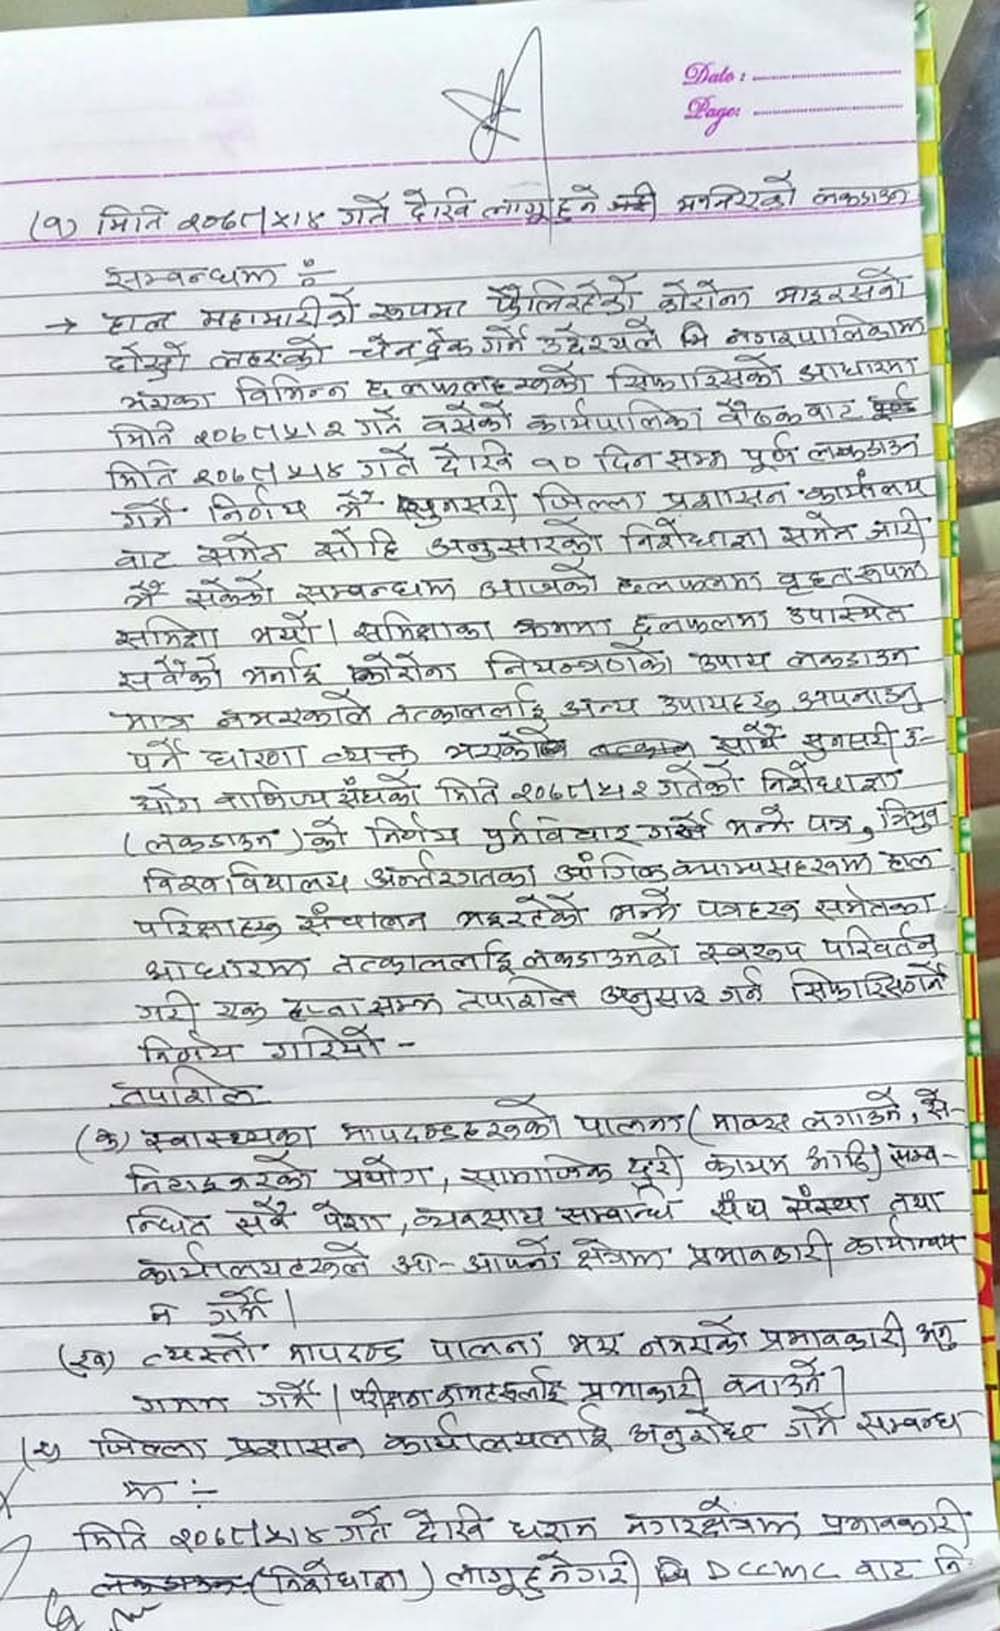 Date :
Page:
(१) मिति २०७८।५।१४ गते देखि लागू हुने गरी भनिएको लकडाउन
सम्बन्धमा :-
→ हाल महामारीको रूपमा फैलिरहेको कोरोना भाइरसको
दोस्रो लहरको चेन ब्रेक गर्ने उद्देश्यले नगरपालिकामा
भएका विभिन्न छलफलहरूको सिफारिसको आधारमा
मिति २०७८।५।१२ गते बसेको कार्यपालिका बैठक बाट
मिति २०७८।५।१४ गते देखि १० दिन सम्म पूर्ण लकडाउन
गर्ने निर्णय भै सुनसरी जिल्ला प्रशासन कार्यालय
बाट समेत सोहि अनुसारको निशेधाज्ञा समेत जारी
भै सकेको सम्बन्धमा आजको छलफलमा वृहत रूपमा
समिक्षा भयो। समिक्षाका क्रममा छलफलमा उपस्थित
सवैको भनाई कोरोना नियन्त्रणको उपाय लकडाउन
मात्र नभएकाले तत्काललाई अन्य उपायहरू अपनाउनु
पर्ने धारणा व्यक्त भएको साथै सुनसरी उ-
द्योग वाणिज्य संघको मिति २०७८।५।१२ गतेको निशेधाज्ञा
(लकडाउन) को निर्णय पुर्नविचार गर्ने भन्ने पत्र, त्रिभुवन
विश्व विद्यालय अर्न्तरगतका आंगिक क्याम्पसहरूमा हाल
परिक्षाहरू संचालन भइरहेको भन्ने पत्रहरू समेतका
आधारमा तत्काललाई लकडाउनको स्वरूप परिवर्तन
गरी एक हप्ता सम्म तपशिल अनुसार गर्न सिफारिस गर्ने
निर्णय गरियो -
तपशिल
(क) स्वास्थ्यका मापदण्डहरूको पालना (मास्क लगाउने, से-
निटाइजरको प्रयोग, सामाजिक दुरी कायम आदि) सम्ब-
न्धित सवै पेशा, व्यवसाय सम्बन्धि संघ संस्था तथा
कार्यालयहरूले आ-आफ्नो क्षेत्रमा प्रभावकारी कार्यान्वय
न गर्ने।
(ख) त्यस्तो मापदण्ड पालना भए नभएको प्रभावकारी अनु
गमन गर्ने। परीक्षण कामहरूलाई प्रभाकारी बनाउने।
(२) जिल्ला प्रशासन कार्यालयलाई अनुरोध गर्ने सम्बन्ध
मा :-
मिति २०७८।५।१४ गते देखि धरान नगरक्षेत्रमा प्रभावकारी
(निशेधाज्ञा) लागू हुनेगरी DCCMC बाट नि-